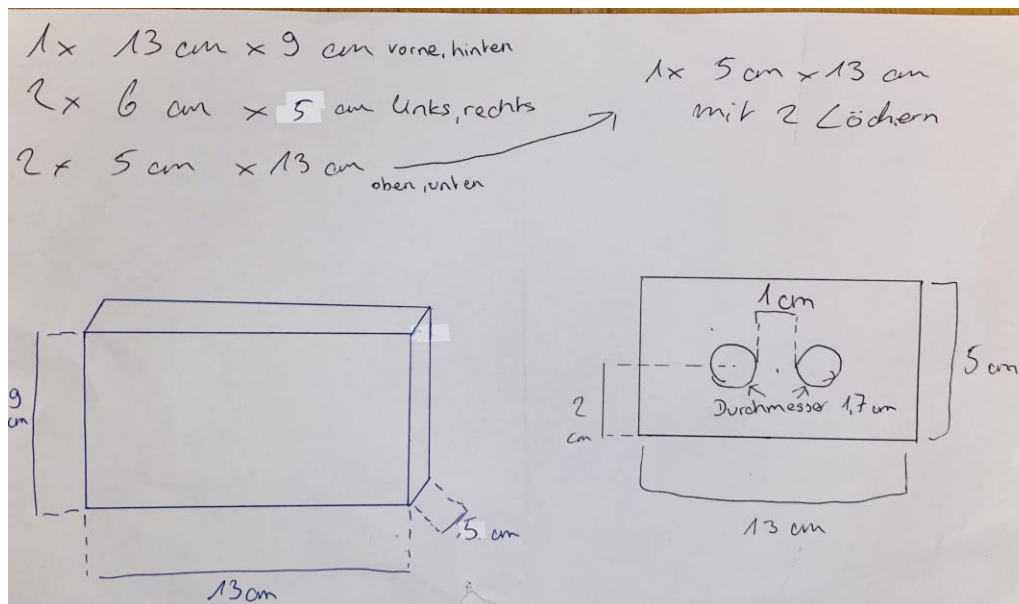 1x 13 cm x 9 cm vorne, hinten
2x 6 cm x 5 cm links, rechts
2x 5 cm x 13 cm oben, unten
1x 5 cm x 13 cm
mit 2 Löchern
9
cm
13 cm
5 cm
1 cm
Durchmesser 1,7 cm
2
cm
5 cm
13 cm